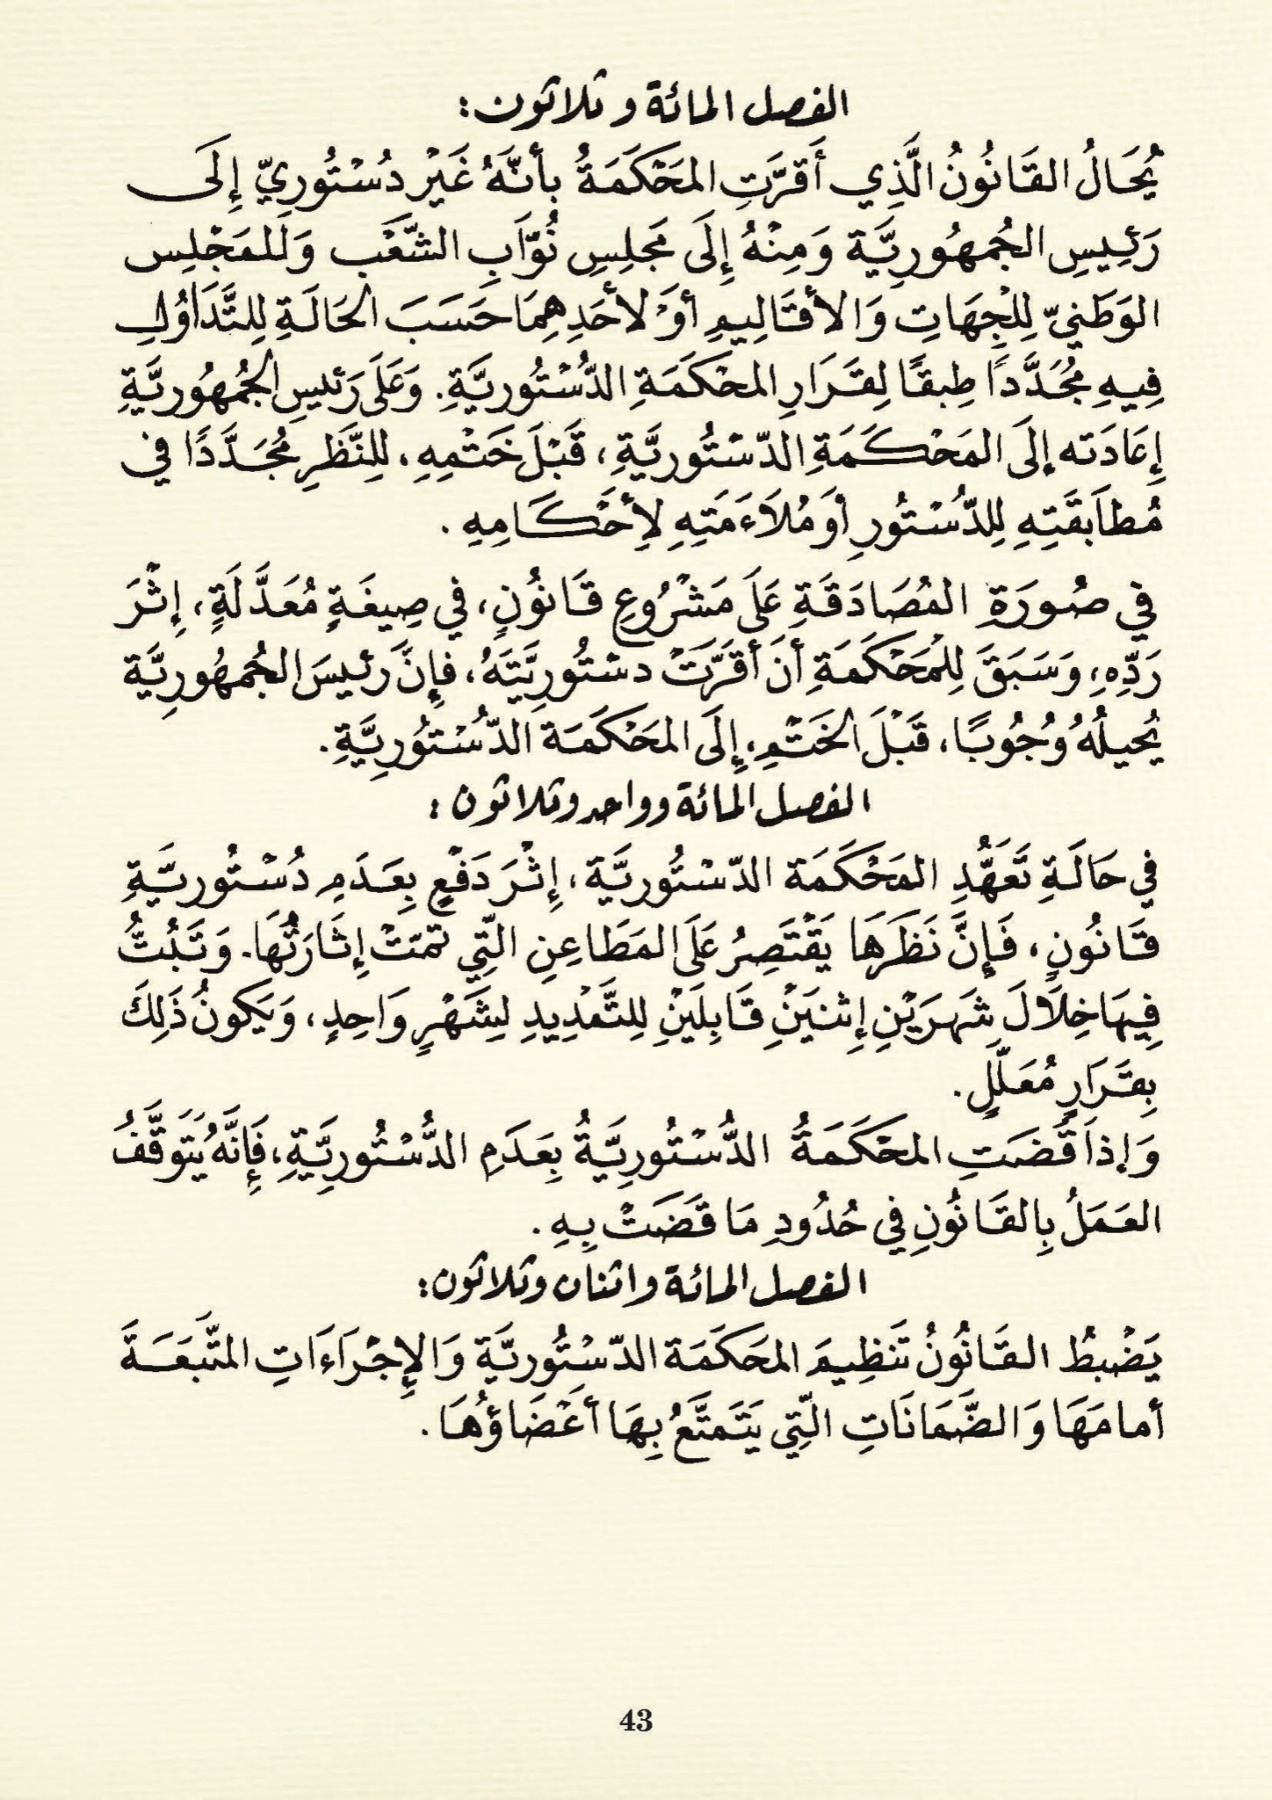 الفصل المائة و ثلاثون:
يُحَالُ القَانُونُ الَّذِي أَقرَّتِ المَحْكَمَةُ بأنَّهُ غَيْر دُسْتُورِيّ إِلَى
رَئِيسِ الجُمهُورِيَّة وَمِنْهُ إِلَى مَجلِسِ نُوَّابِ الشَّعْب وَللمَجْلِس
الوَطَنيّ لِلْجِهَاتِ وَالأقَالِيمِ أوْ لأحَدِهِمَا حَسَبَ الحَالَةِ لِلتَّدَاوُلِ
فِيهِ مُجُدَّدًا طِبقًا لِقَرَارِ المحْكَمَةِ الدُّسْتُوريَّةِ. وَعَلَى رَئيسِ الجُمْهُوريَّةِ
إِعَادَته إلَى المَحْكَمَةِ الدّسْتُوريَّةِ، قَبْلَ خَتْمِهِ، لِلنَّظَرِ مُجَدَّدًا في
مُطاَبقَتِهِ لِلدُّسْتُورِ أوْ مُلَاءَمَتِهِ لِأحْكَامِهِ .
في صُورَةِ المُصَادَقَةِ عَلَى مَشْرُوعِ قَانُونٍ، في صِيغَةٍ مُعَدَّلَةٍ، إِثْرَ
رَدِّهِ، وَسَبَقَ لِلْمَحْكَمَةِ أنْ أقَرَّتْ دستُورِيَّتَهُ، فإِنَّ رئيسَ الجُمهُورِيَّة
يُحيلُهُ وُجُوبًا، قَبْلَ الخَتْمِ، إِلَى المَحْكَمَة الدّسْتوُرِيَّةِ.
الفصل المائة وواحد وثلاثون :
في حَالَةِ تَعَهُّدِ المَحْكَمَة الدّسْتُوريَّة، إِثْرَ دَفْعٍ بِعَدَمِ دُسْتُوريَّةِ
قَانُونٍ، فَإِنَّ نَظَرَهَا يَقْتَصِرُ عَلَى المَطَاعِنِ الّتِي تمّتْ إثَارَتُهَا. وَتَبُتُّ
فِيهَا خِلَالَ شَهرَيْنِ إِثنَيْنِ قَابِلَيْنِ لِلتَّمْدِيدِ لِشَهْرٍ وَاحِدٍ، وَيَكونُ ذَلِكَ
بِقَرَارٍ مُعَلَّلٍ.
وَإذا قَضَتِ المحْكَمَةُ الدُّسْتُورِيَّةُ بِعَدَمِ الدُّسْتُوريَّةِ، فَإِنَّهُ يَتَوَقَّفُ
العَمَلُ بِالقَانُونِ في حُدُودِ مَا قَضَتْ بِهِ .
الفصل المائة واثنان وثلاثون:
يَضْبُطُ القَانُونُ تَنظِيمَ المَحَكَمَة الدّسْتُوريَّةِ وَالإِجْرَاءَاتِ المتَّبَعَةَ
أمامَهَا وَالضَّمَانَاتِ الّتِي يَتَمتَّعُ بِهَا أعْضَاؤُهَا .
43